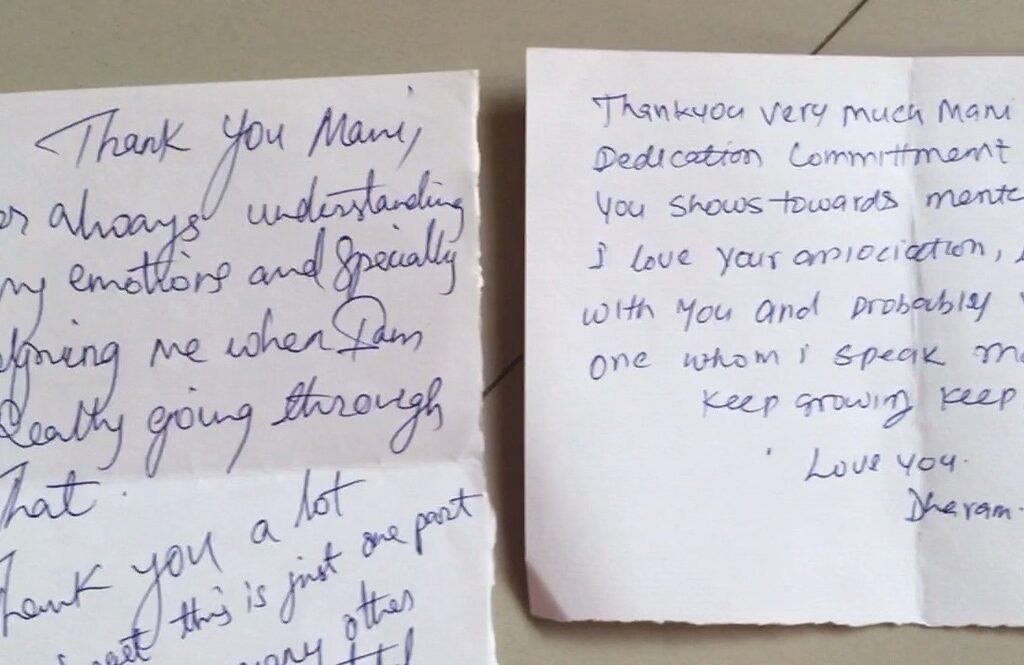 Thank You Mani,
always understanding
my emotions and specially
me when I am
Really going through
That.
Thank you a lot
this is just one part
many other
Thankyou very much Mani
Dedication Committment
You shows towards
I love your association,
with you and probably
one whom i speak
keep growing keep
Love you.
Dharam.